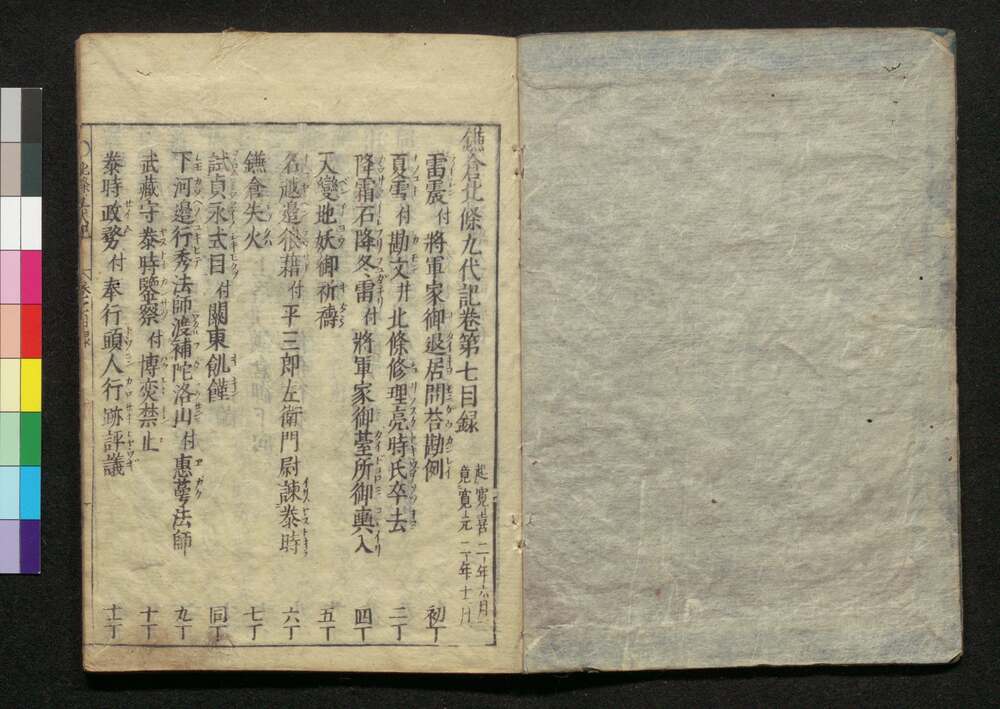 鎌倉北條九代記卷第七目録
起寛喜二年六月
竟寛元二年十二月
雷震付將軍家御退居問荅勘例 初丁
夏雪付勘文并北條修理亮時氏卒去 二丁
降霜石降冬雷付將軍家御臺所御輿入 四丁
天變地妖御祈禱 五丁
名越邊狼藉付平三郎左衛門尉諫泰時 六丁
鎌倉失火 七丁
試貞永式目付關東飢饉 同丁
下河邊行秀法師渡補陀洛山付惠蕚法師 九丁
武藏守泰時鑒察付博奕禁止 十丁
泰時政務付奉行頭人行跡評議 十一丁